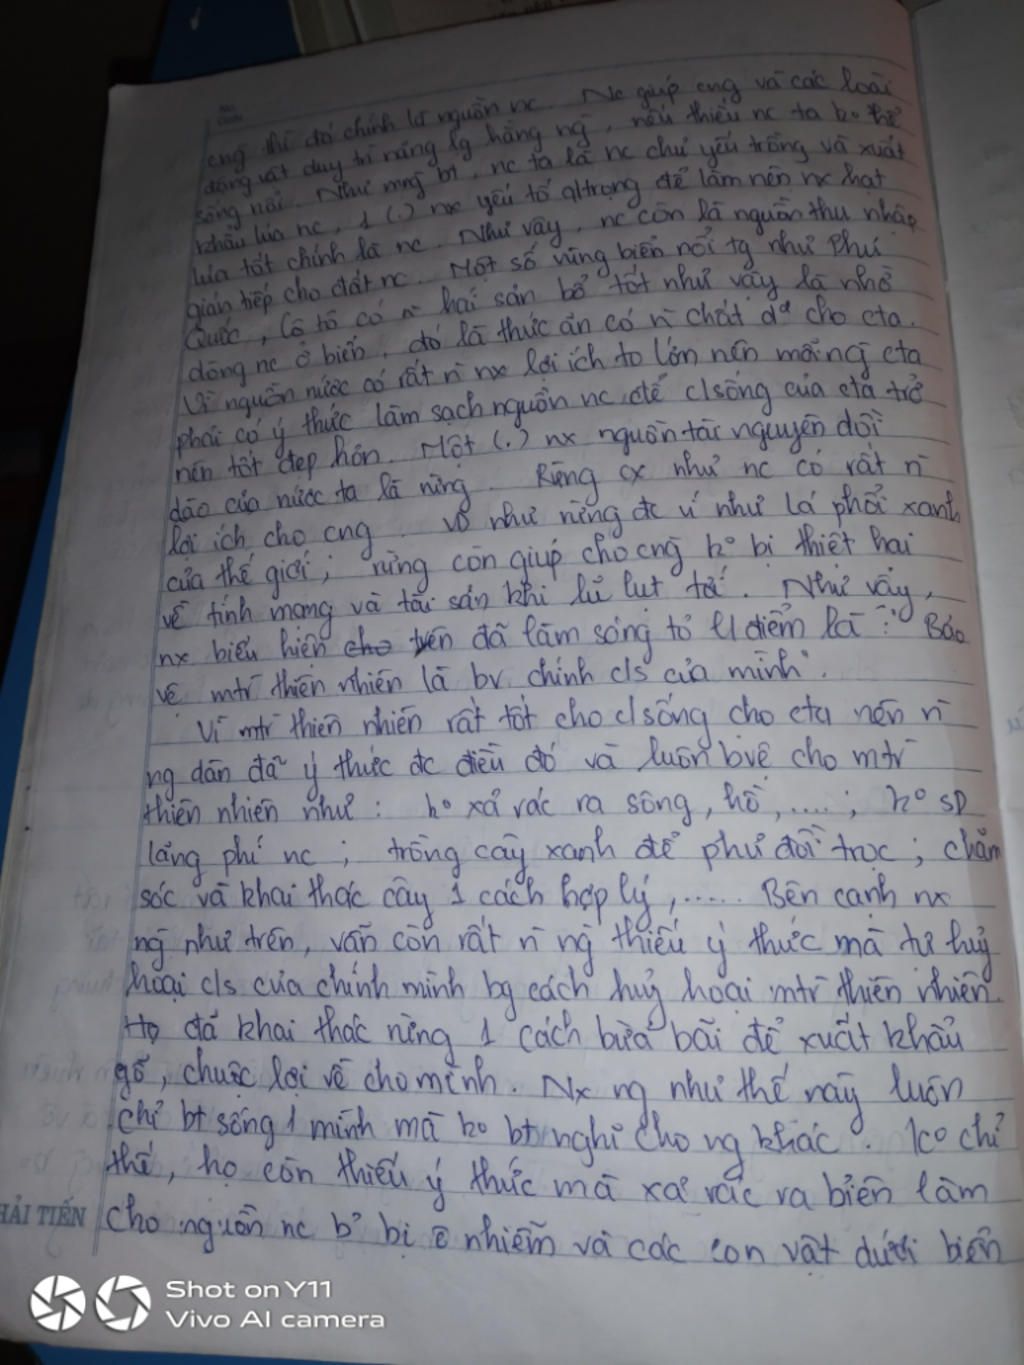 cng thì đó chính là nguồn nc. Nc giúp cng và các loài
động vật duy trì năng lg hằng ng, nếu thiếu nc ta ko thể
sống nổi. Như mng bt, nc ta là nc chủ yếu trồng và xuất
khẩu lúa nc, 1 (.) nx yếu tố qltrọng để làm nên nx hạt
lúa tốt chính là nc. Như vậy, nc còn là nguồn thu nhập
gián tiếp cho đất nc. Một số vùng biển nổi tg như Phú
Quốc, Cô tô có n̄ hải sản bổ tốt như vậy là nhờ
dòng nc ở biển, đó là thức ăn có n̄ chất dd cho cta.
Vì nguồn nước có rất n̄ nx lợi ích to lớn nên mỗi ng cta
phải có ý thức làm sạch nguồn nc để c/sống của cta trở
nên tốt đẹp hơn. Một (.) nx nguồn tài nguyên dồi
dào của nước ta là rừng. Rừng cx như nc có rất n̄
lợi ích cho cng. Vd như rừng đc ví như lá phổi xanh
của thế giới; rừng còn giúp cho cng ko bị thiệt hại
về tính mạng và tài sản khi lũ lụt tới. Như vậy,
nx biểu hiện cho trên đã làm sáng tỏ q/điểm là: "Bảo
vệ mtr thiên nhiên là bv chính c/s của mình".
Vì mtr thiên nhiên rất tốt cho c/sống cho cta nên n̄
ng dân đã ý thức đc điều đó và luôn bvệ cho mtr
thiên nhiên như: ko xả rác ra sông, hồ,....; ko sd
lãng phí nc; trồng cây xanh để phủ đồi trọc; chăm
sóc và khai thác cây 1 cách hợp lý,..... Bên cạnh nx
ng như trên, vẫn còn rất n̄ ng thiếu ý thức mà tự huỷ
hoại c/s của chính mình bg cách huỷ hoại mtr thiên nhiên.
Họ đã khai thác rừng 1 cách bừa bãi để xuất khẩu
gỗ, chuộc lợi về cho mình. Nx ng như thế này luôn
chỉ bt sống 1 mình mà ko bt nghĩ cho ng khác. Ko chỉ
thế, họ còn thiếu ý thức mà xả rác ra biển làm
cho nguồn nc bị ô nhiễm và các con vật dưới biển
HẢI TIẾN
Shot on Y11
Vivo AI camera